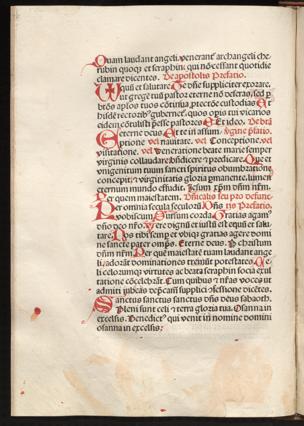 Quam laudant angeli venerant archangeli che
rubin quoqz et seraphin: qui nō cessant quotidie
clamare dicentes. De apostolis Prefatio.
equū et salutare. Te dñe suppliciter exorare.
Ut gregē tuū pastor eterne nō deseras, sed p
btōs apłos tuos cōtinua ptectōe custodias. Et
eisdē rectoribꝰ gubernet. quos opis tui vicarios
eidem cōtulisti preesse pastores. Et ideo. De btā
eterne deus. Et te in assum virginē prefatio.
ptione vel nativitate. vel Conceptione. vel
visitatione. vel veneratione beate marie semper
virginis collaudare bñdicere et predicare. Que et
unigenitum tuum sancti spiritus obumbratiōne
concepit: et virginitatis gloria pmanente. lumen
eternum mundo effudit. Jesum xpm dñm nrm.
Per quem maiestatem.
Per omnia secula seculorū. Dñs
vobiscum. Sursum corda. Gratias agamꝰ
dño deo nrō. Vere dignū et iustū est equū et salu
tare. Nos tibi semper et ubiqz gratias agere domi
ne sancte pater omps. Eterne deus. P christum
dñm nrm. Per quē maiestatē tuam laudant ange
li, adorāt dominationes tremūt potestates. Ce
li celorumqz virtutes ac beata seraphin socia exul
tatione cōcelebrāt. Cum quibus et nrās voces ut
admitti iubeas depcam̄ supplici cōfessione dicētes.
Sanctus sanctus sanctus dñs deus sabaoth.
Pleni sunt celi et terra gloria tua. Osanna in
excelsis. Benedictꝰ qui venit in nomine domini
osanna in excelsis: